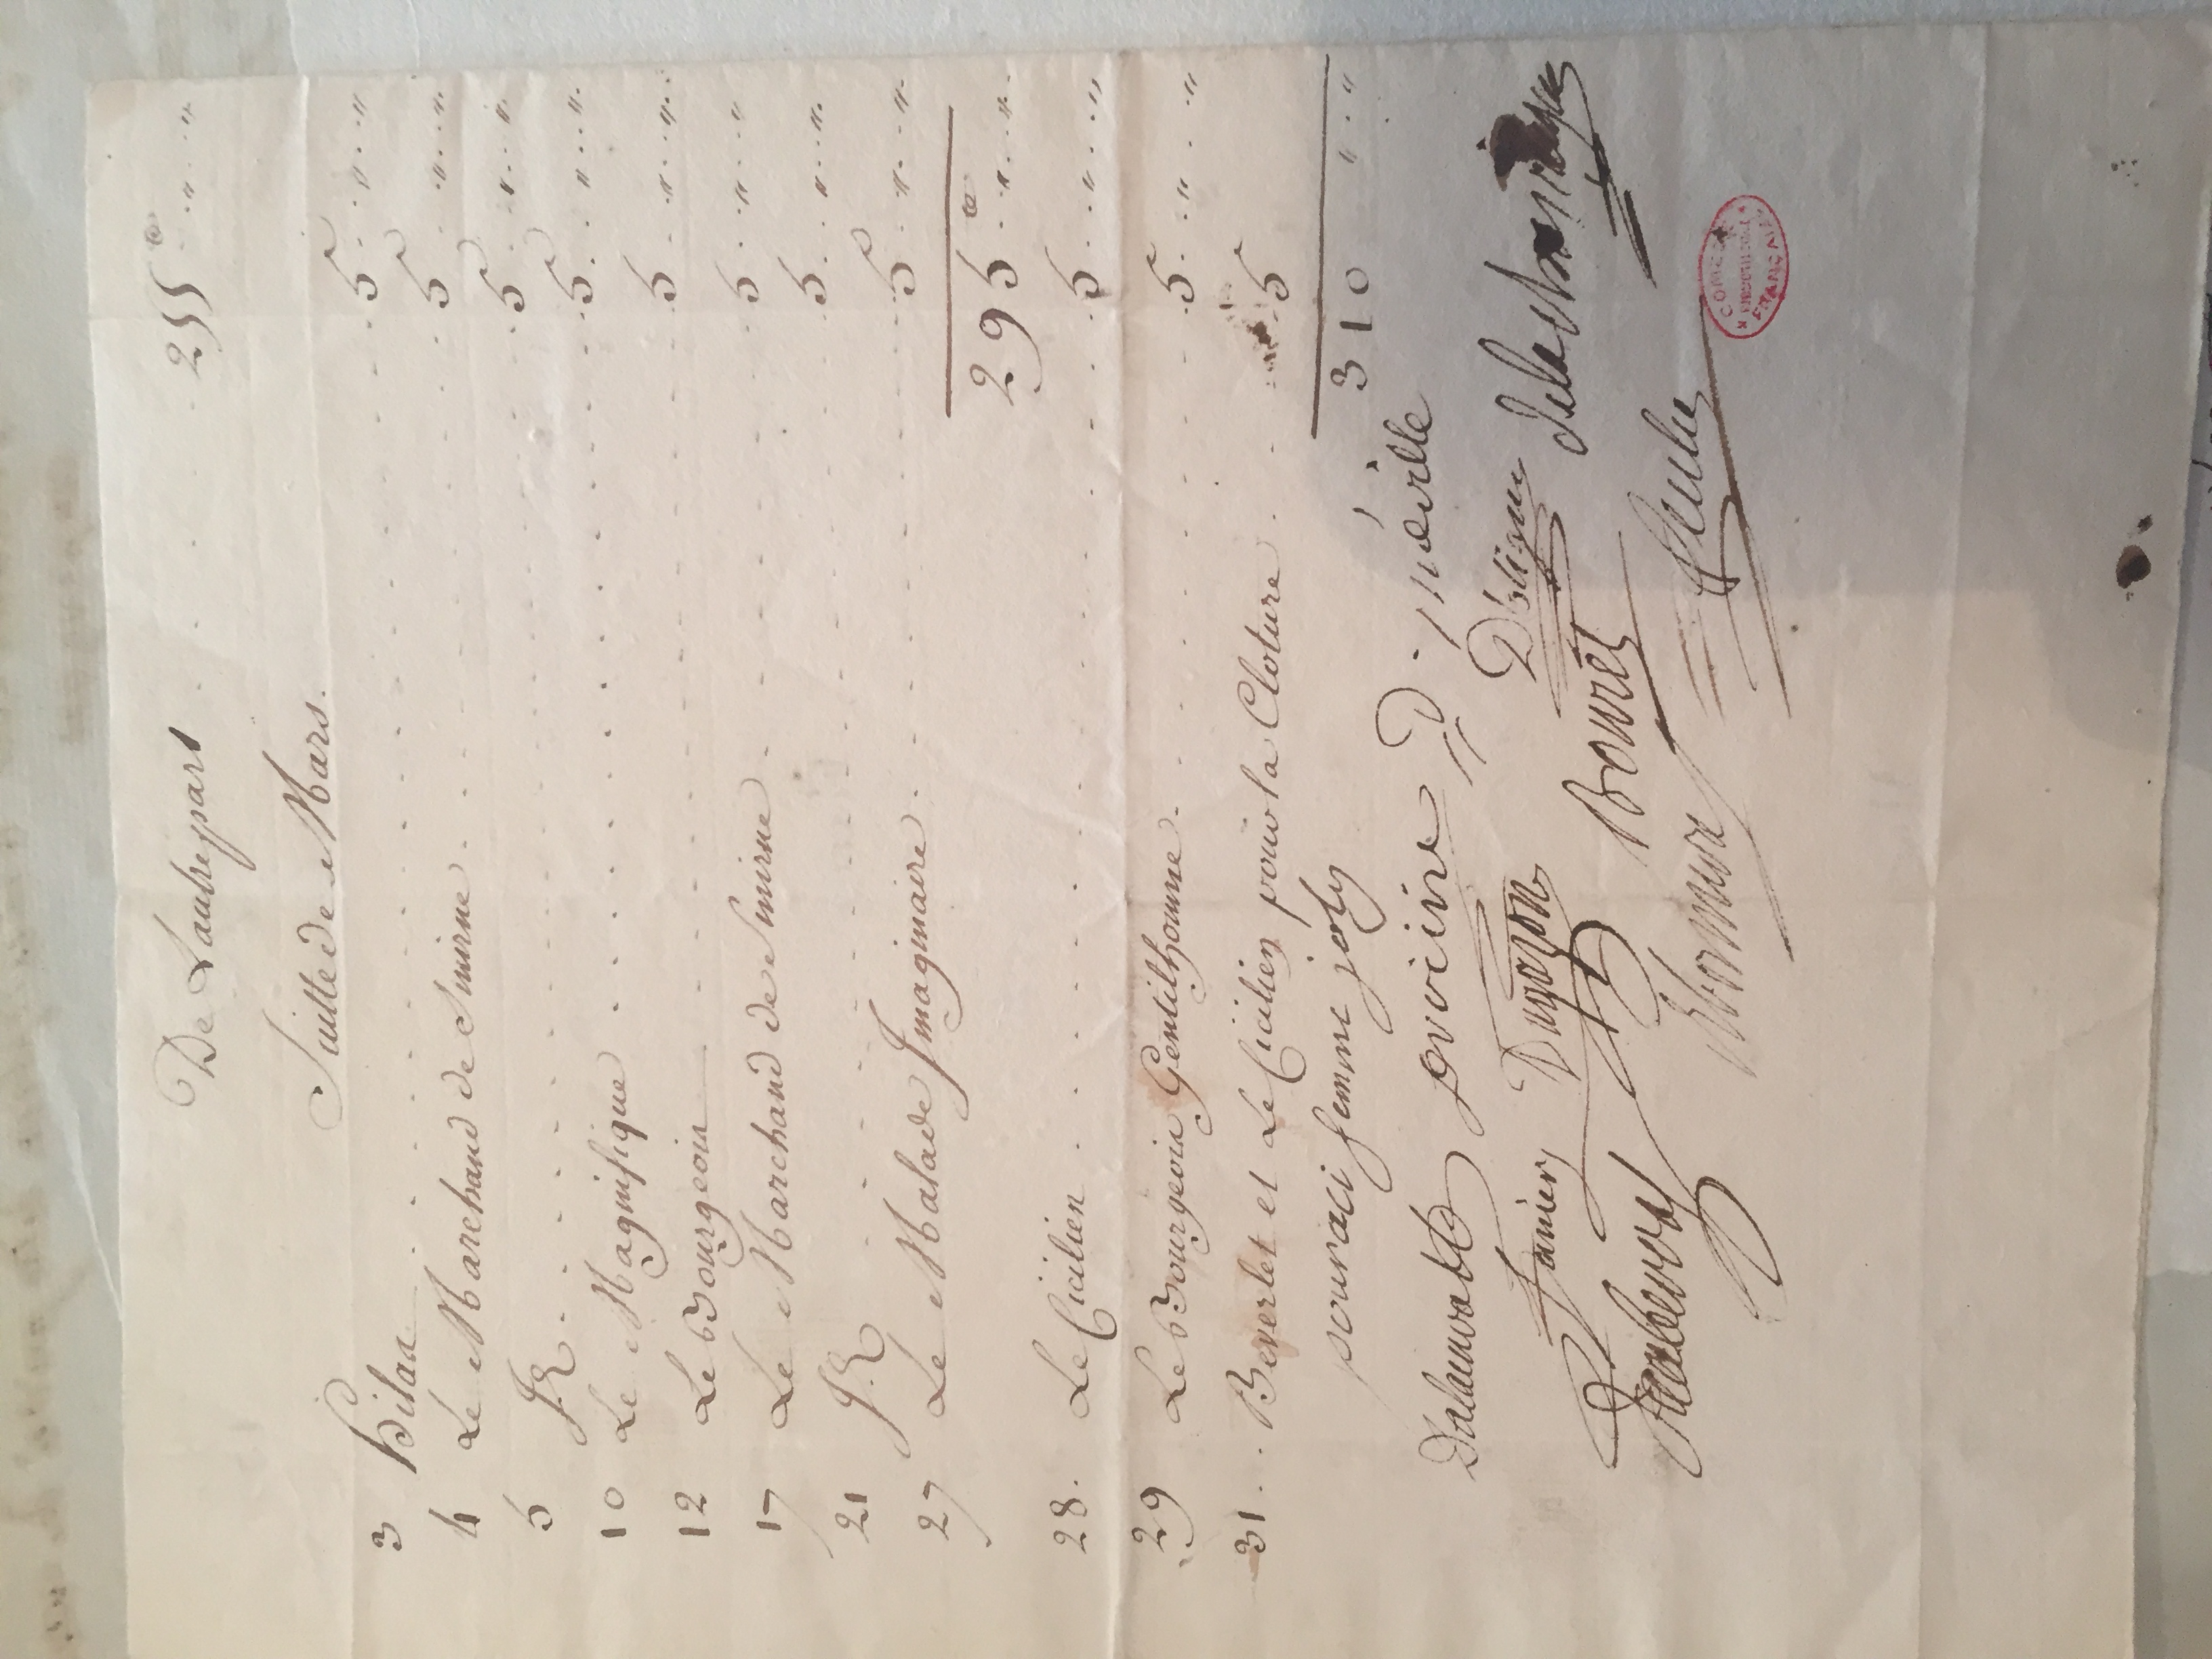 De Lautrepart . . . . . . 255 tt . " . . "
Suitte de Mars.
3 Hilas . . . . . 5 . . " . . "
4 Le Marchand de Smirne . . . . . 5 . " . . "
5 Id. . . . . . 5 . " . . "
10 Le Magnifique . . . . . 5 . . " . . "
12 Le Bourgeois . . . . . 5 . " . . "
17 Le Marchand de Smirne . . . . . 5 . . " . . "
21 Id. . . . . . 5 . . " . . "
27 Le Malade Imaginaire . . . . . 5 . " . . "
295 tt . " . . "
28. Le Cicilien . . . . . 5 . . " . . "
29 Le Bourgeois Gentilhomme . . . . . 5 . . " . . "
31 . . Beverlet et Le Cicilien pour la Cloture . . 5
pour aci femme joly 310 " . "
Dalainval préville
Dugazon
Bouret
COMEDIE
BIBLIOTHEQUE
FRANÇAISE